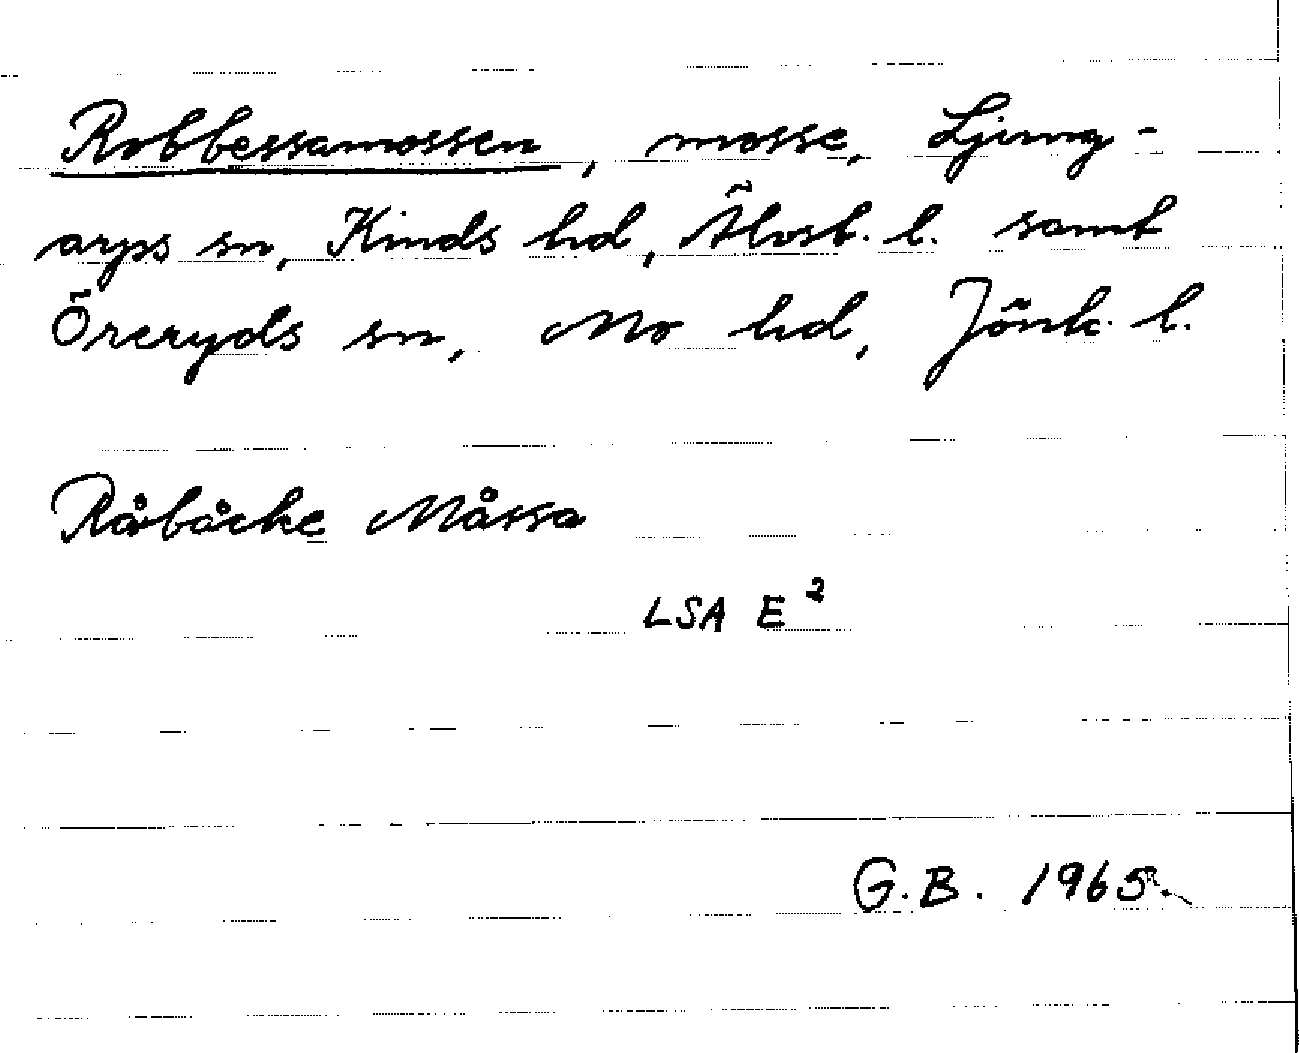 Robbessamossen, mosse, Ljung-
arps sn, Kinds hd, Älvsb. l. samt
Öreryds sn, Mo hd, Jönk. l.
Råbåcke Måssa
LSA E²
G.B. 1965.